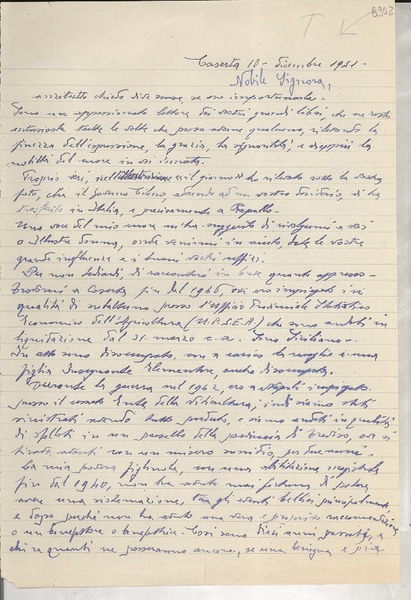 8902
Caserta 18 - dicembre 1951 -
Nobile Signora,
anzitutto chiedo di scusare se oso importunarla -
Sono un appassionato lettore dei vostri grandi libri, che ne resto
entusiasta tutte le volte che posso averne qualcuno, rilevando la
finezza dell'espressione, la grazia, la signorilità, e
nobiltà del cuore in essi
Proprio ieri, nell'Illustrazione del giornale ho rilevato sotto la vostra
foto, che il Governo Cileno, aderendo ad un vostro desiderio, vi ha
trasferito in Italia, e precisamente a Rapallo -
Una voce del mio cuore mi ha suggerito di rivolgermi a voi
o Illustre donna, onde venirmi in aiuto, data la vostra
grande influenza e i buoni vostri uffici -
Per non tediarvi, vi racconterò in breve quanto appresso -
Trovomi a Caserta fin dal 1946, ove ero impiegato in
qualità di presso l'Ufficio Provinciale Statistico
Economico dell'Agricoltura (U.P.S.E.A.) che sono andati in
liquidazione dal 31 marzo c.a. Sono Siciliano -
In atto sono disoccupato, con a carico la moglie e una
figlia Insegnante Elementare, anche disoccupata.
Durante la guerra nel 1942, ero a Napoli impiegato
presso il Ente della, indi siamo stati
sinistrati avendo tutto perduto, e siamo andati in qualità
di sfollati in un paesello della provincia di, ove si
tirava avanti con un misero sussidio, per due anni -
La mia povera figliuola, con una abilitazione magistrale
fin dal 1940, non ha avuto mai fortuna di potere
avere una sistemazione, tra gli eventi bellici principalmente,
e dopo perché non ha avuto una vera e propria raccomandazione
o un benefattore o benefattrice. Così sono dieci anni passati, e
chi sa quanti ne passeranno ancora, se una benigna e pia